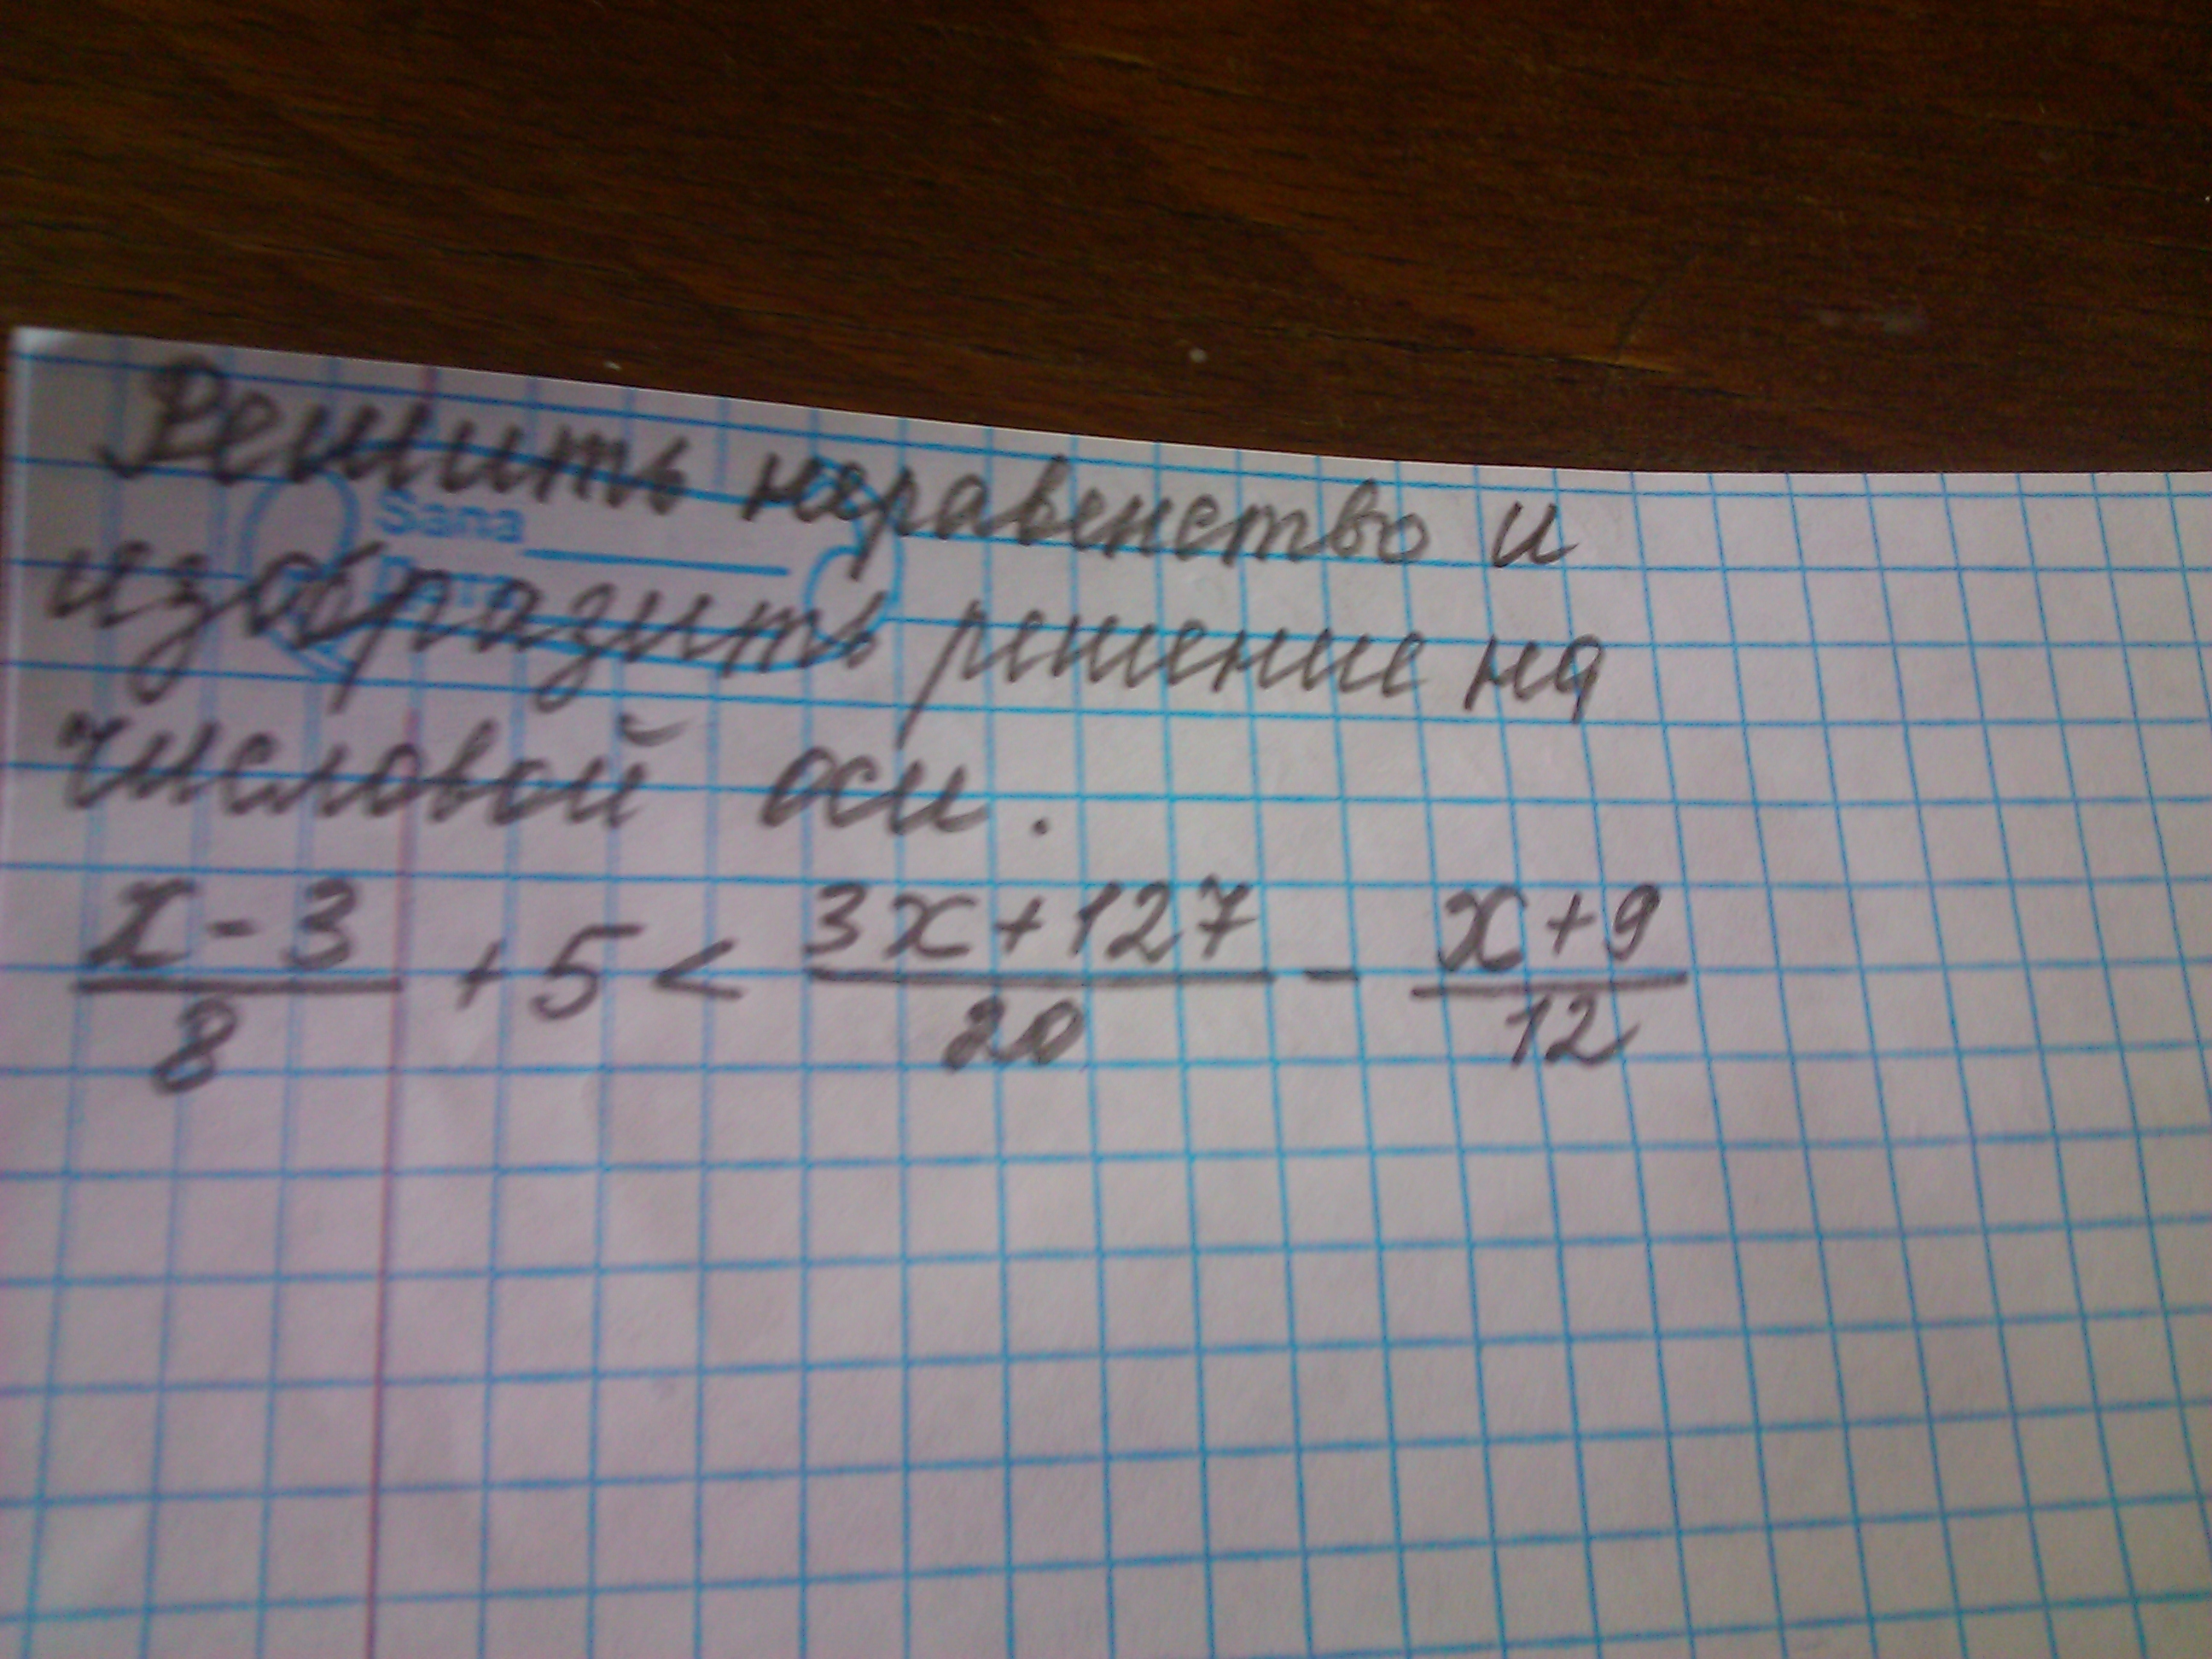 Решить неравенство и
Sana
изобразить решение на
числовой оси.
x-3/8 +5 < 3x+127/20 - x+9/12